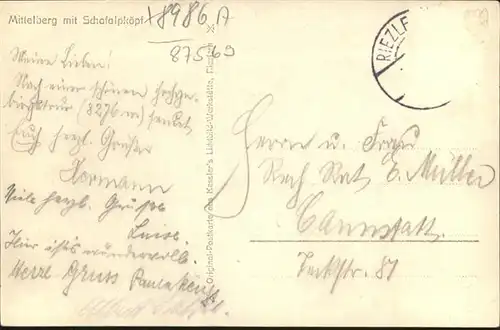 Mittelberg mit Schafalpköpf
x8986A
87569
RIEZLE
Meine Lieben!
Nach einer schönen Hochge-
birgstour (8276 m) sendet
Euch herzl. Grüße
Hermann
Viele herzl. Grüsse
Luise.
Hier ist's wundervoll.
Herzl. Gruss
Original-Postkarte aus Kessler's Lichtbild-Werkstätte,
Herrn u. Frau
Rech. Rat E. Müller
Cannstatt.
Teckstr. 81